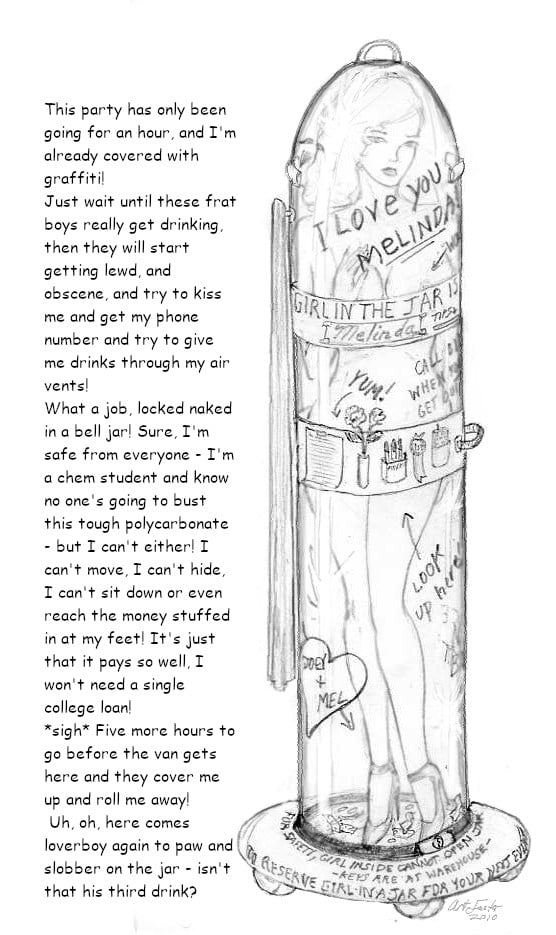 This party has only been
going for an hour, and I'm
already covered with
graffiti!
Just wait until these frat
boys really get drinking,
then they will start
getting lewd, and
obscene, and try to kiss
me and get my phone
number and try to give
me drinks through my air
vents!
What a job, locked naked
in a bell jar! Sure, I'm
safe from everyone - I'm
a chem student and know
no one's going to bust
this tough polycarbonate
- but I can't either! I
can't move, I can't hide,
I can't sit down or even
reach the money stuffed
in at my feet! It's just
that it pays so well, I
won't need a single
college loan!
*sigh* Five more hours to
go before the van gets
here and they cover me
up and roll me away!
Uh, oh, here comes
loverboy again to paw and
slobber on the jar - isn't
that his third drink?
I LOVE YOU
MELINDA
GIRL IN THE JAR IS
Melinda
TIPS
YUM!
CALL
WHEN
GET
LOOK
UP here
JOEY
+
MEL
FOR SAFETY, GIRL INSIDE CANNOT OPEN JAR
-KEYS ARE AT WAREHOUSE-
TO RESERVE GIRL-IN-A-JAR FOR YOUR NEXT EVENT
2010